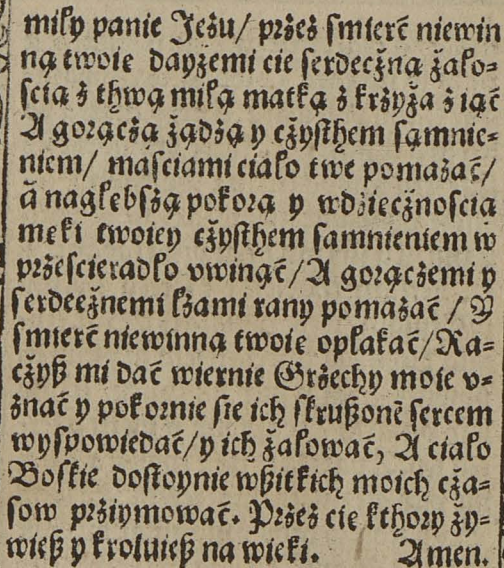 miły panie Jezu/ przez smierć niewin
ną twoie dayżemi cie serdeczną żało⸗
scią z thwą miłą matką z krzyża z iąć
A gorączą żądzą y czysthem sąmnie⸗
niem/ masciami ciało twe pomazać/
ā nagłebszą pokorą y wdziecznoscią
meki twoicy czysthem samnieniem w
przescieradło vwinąć/ A gorączemi y
serdecznemi łzami rany pomazać / Y
smierć niewinną twoię opłakać/ Ra⸗
czyß mi dać wiernie Grzechy moie v⸗
znać y pokornie sie ich skrußonē sercem
wyspowiedać/ y ich żałować, A ciało
Boskie dostoynie wßitkich moich cża⸗
sow prziymować. Przez cie kthory ży⸗
wieß y kroluieß na wieki. Amen.